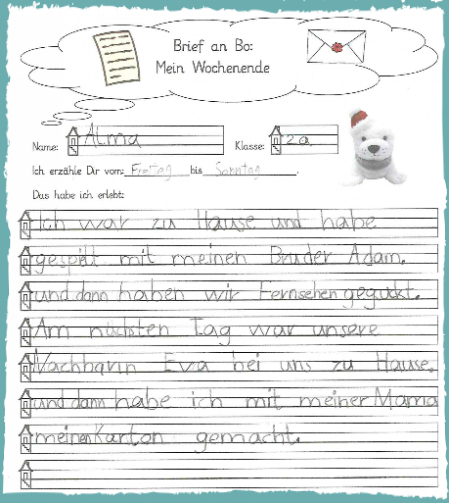 Brief an Bo:
Mein Wochenende
Name: Alma Klasse: 2a
Ich erzähle Dir vom: Freitag bis Sonntag.
Das habe ich erlebt:
Ich war zu Hause und habe
gespielt mit meinen Bruder Adam.
und dann haben wir Fernsehen geguckt.
Am nächsten Tag war unsere
Nachbarin Eva bei uns zu Hause,
und dann habe ich mit meiner Mama
meinen Karton gemacht.